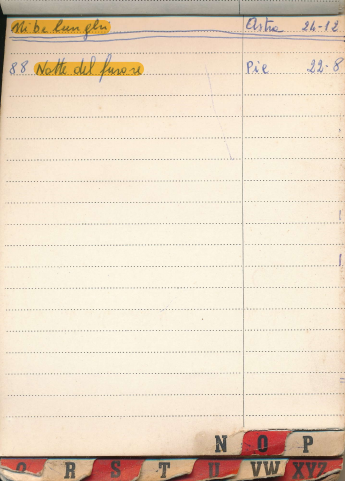 Nibelunghi Astra 24-12
88 Notte del furore Pic 22-8
N O P
Q R S T U VW XYZ